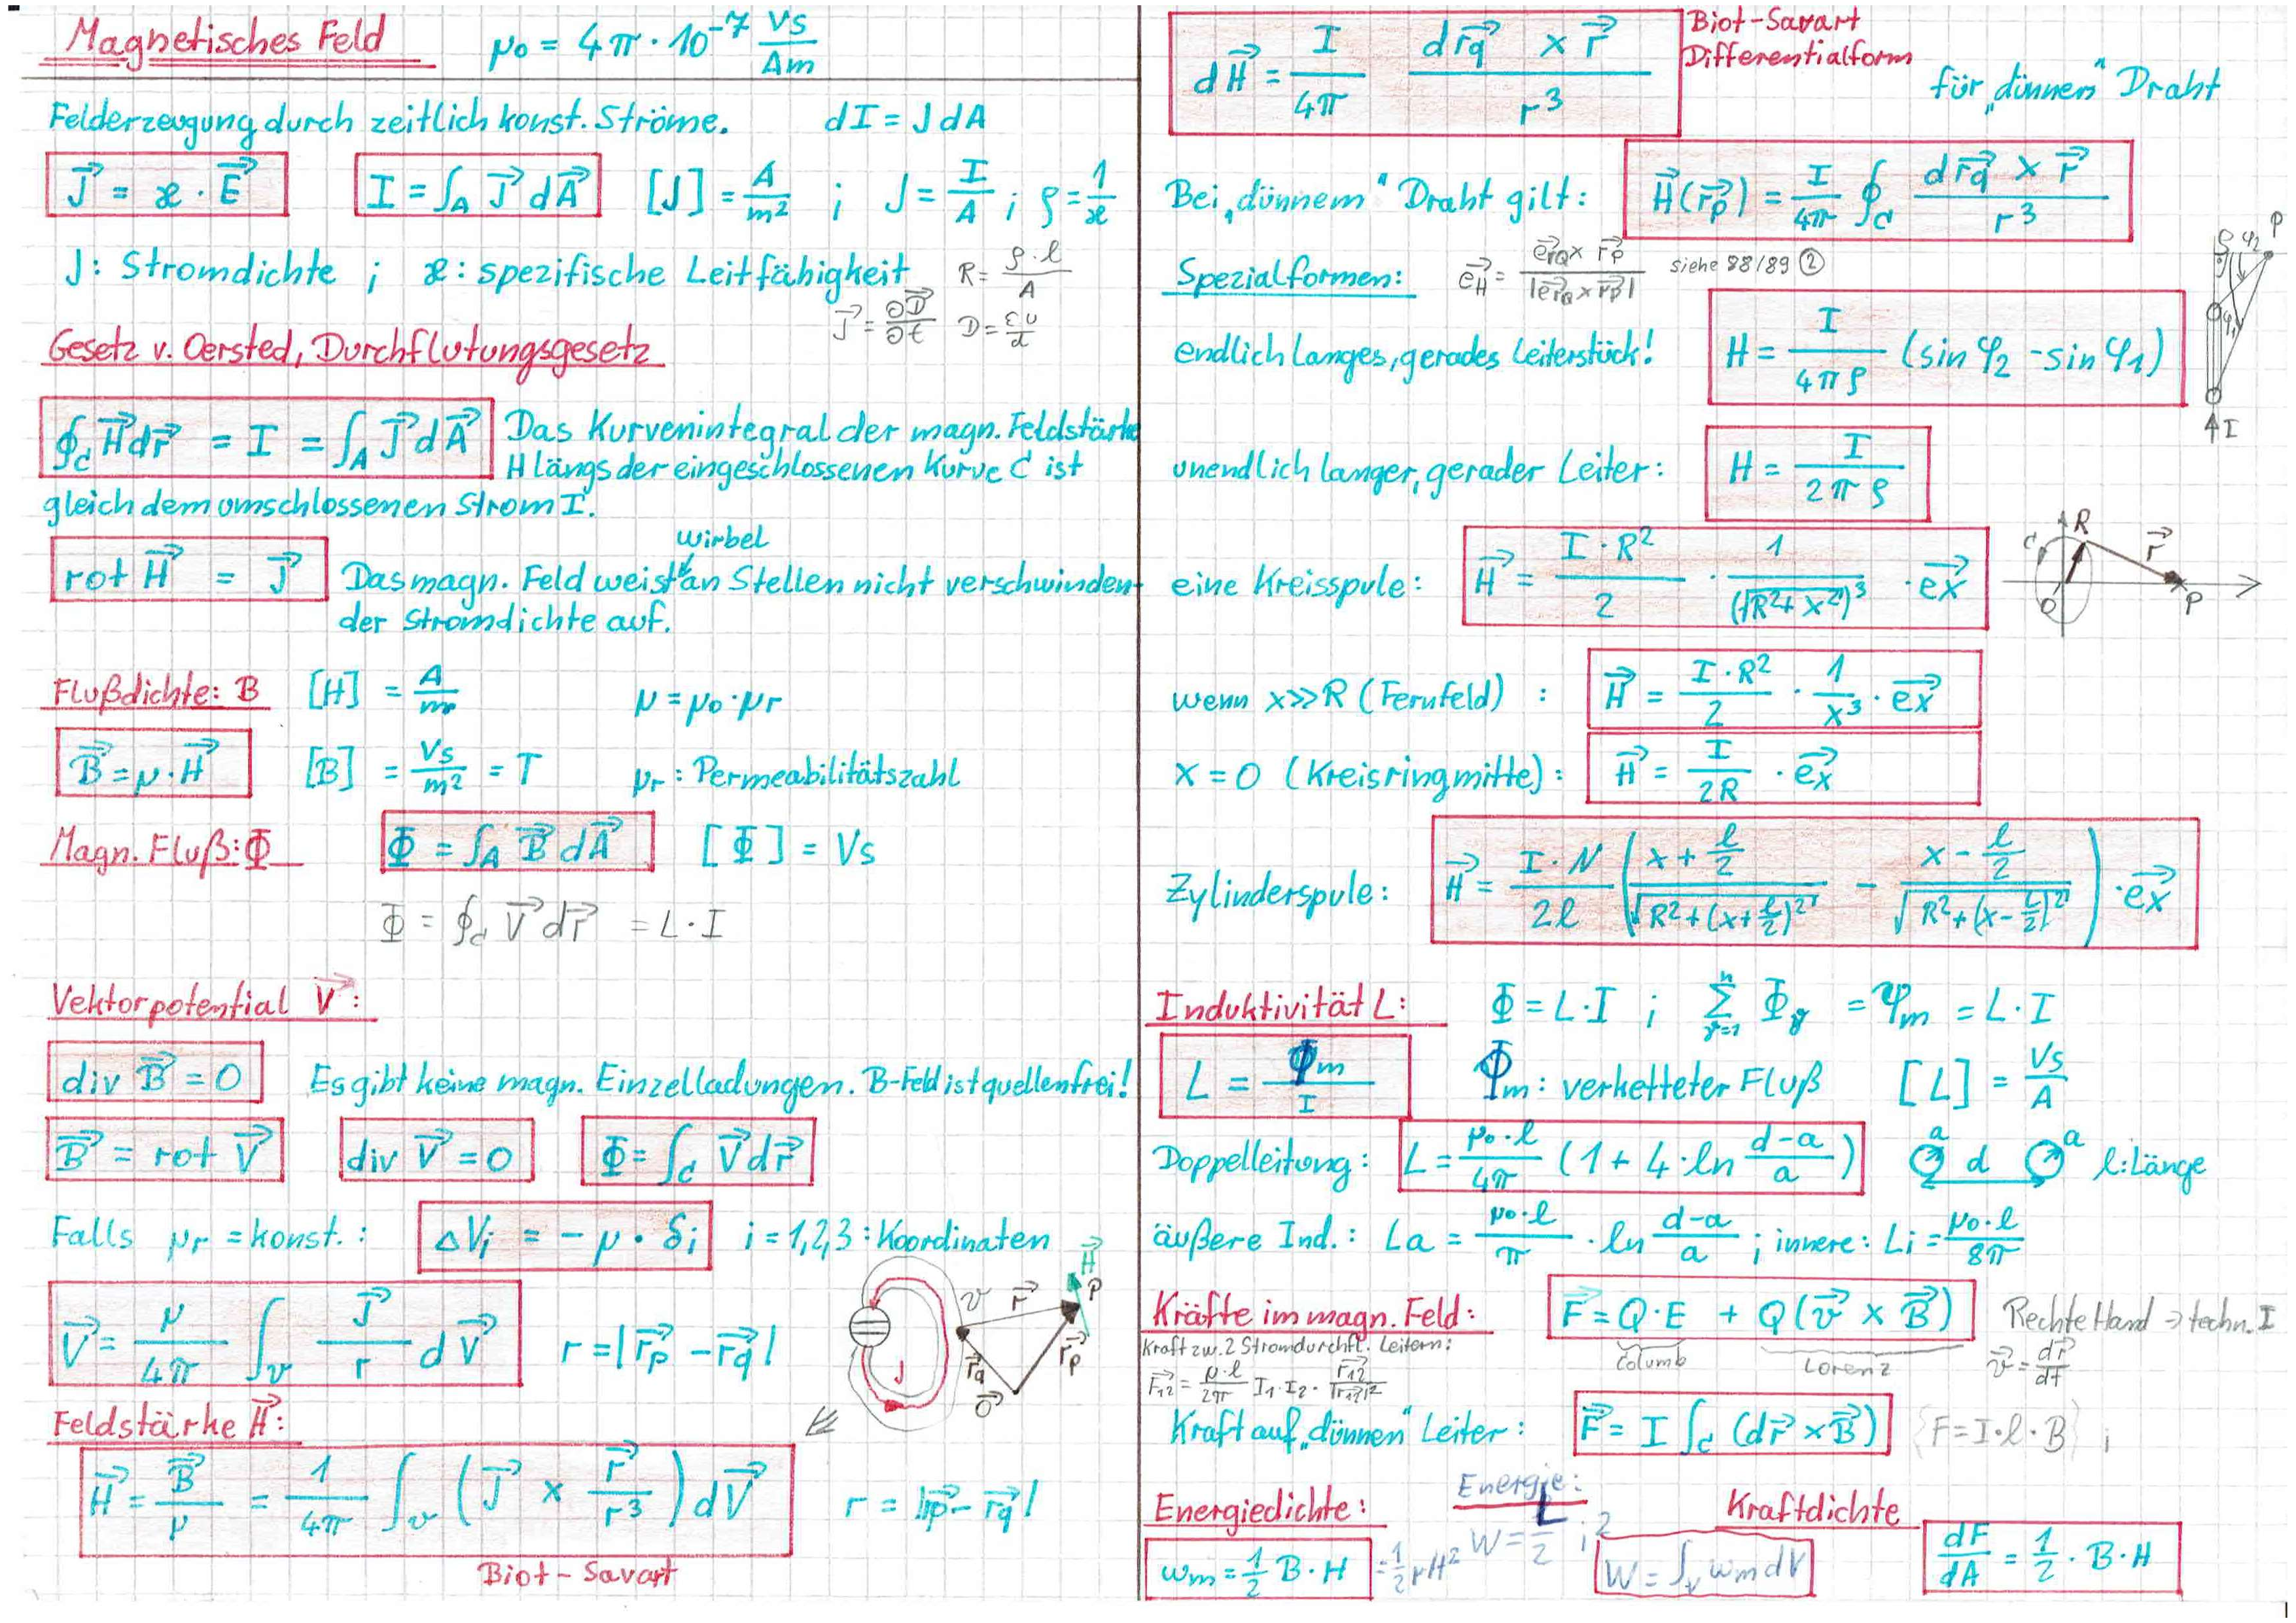 Magnetisches Feld   μ₀ = 4π · 10⁻⁷ Vs/Am
Felderzeugung durch zeitlich konst. Ströme.   dI = J dA
J⃗ = ϰ · E⃗   I = ∫_A J⃗ dA⃗   [J] = A/m² ; J = I/A ; ρ = 1/ϰ
J: Stromdichte ; ϰ: spezifische Leitfähigkeit   R = ρ·l/A
J⃗ = ∂D⃗/∂t   D = εU/d
Gesetz v. Oersted, Durchflutungsgesetz
∮_C H⃗ dr⃗ = I = ∫_A J⃗ dA⃗   Das Kurvenintegral der magn. Feldstärke
H längs der eingeschlossenen Kurve C ist
gleich dem umschlossenen Strom I.
wirbel
rot H⃗ = J⃗   Das magn. Feld weist an Stellen nicht verschwinden-
der Stromdichte auf.
Flußdichte: B   [H] = A/m   μ = μ₀·μr
B⃗ = μ·H⃗   [B] = Vs/m² = T   μr: Permeabilitätszahl
Magn. Fluß: Φ   Φ = ∫_A B⃗ dA⃗   [Φ] = Vs
Φ = ∮_C V⃗ dr⃗ = L·I
Vektorpotential V⃗:
div B⃗ = 0   Es gibt keine magn. Einzelladungen. B-Feld ist quellenfrei!
B⃗ = rot V⃗   div V⃗ = 0   Φ = ∫_C V⃗ dr⃗
Falls μr = konst.:   ΔVi = -μ · δi   i = 1,2,3: Koordinaten
V⃗ = μ/4π ∫_v J⃗/r dV⃗   r = |r⃗p - r⃗q|
H⃗
v   r⃗   P
J   r⃗q   r⃗p
O⃗
Feldstärke H⃗:
H⃗ = B⃗/μ = 1/4π ∫_v (J⃗ × r⃗/r³) dV⃗   r = |r⃗p - r⃗q|
Biot-Savart
dH⃗ = I/4π dr⃗q × r⃗ / r³   Biot-Savart
Differentialform
für „dünnen“ Draht
Bei „dünnem“ Draht gilt:   H⃗(r⃗p) = I/4π ∮_C dr⃗q × r⃗ / r³
Spezialformen:   e⃗H = e⃗rQ × r⃗P / |e⃗rQ × r⃗P|   siehe 88/89 ②
endlich langes, gerades Leiterstück!   H = I/4πρ (sin φ₂ - sin φ₁)
P
ρ   φ₂
φ₁
I
unendlich langer, gerader Leiter:   H = I/2πρ
eine Kreisspule:   H⃗ = I·R²/2 · 1/(√R²+x²)³ · e⃗x
C   R   r⃗
O   P
wenn x≫R (Fernfeld) :   H⃗ = I·R²/2 · 1/x³ · e⃗x
x = 0 (Kreisringmitte):   H⃗ = I/2R · e⃗x
Zylinderspule:   H⃗ = I·N/2l ( (x + l/2)/√R²+(x+l/2)² - (x - l/2)/√R²+(x-l/2)² ) · e⃗x
Induktivität L:   Φ = L·I ; Σ_{γ=1}^{n} Φγ = Ψm = L·I
L = Φm/I   Φm: verketteter Fluß   [L] = Vs/A
Doppelleitung:   L = μ₀·l/4π (1 + 4·ln (d-a)/a)   a   d   a   l: Länge
äußere Ind.: La = μ₀·l/π · ln (d-a)/a ; innere: Li = μ₀·l/8π
Kräfte im magn. Feld:   F⃗ = Q·E + Q(v⃗ × B⃗)   Rechte Hand → techn. I
Columb   Lorenz   v⃗ = dr⃗/dt
Kraft zw. 2 Stromdurchfl. Leitern:
F⃗₁₂ = μ·l/2π I₁·I₂ · r⃗₁₂/|r⃗₁₂|²
Kraft auf „dünnen“ Leiter:   F⃗ = I ∫_C (dr⃗ × B⃗)   {F = I·l·B} ;
Energiedichte:   Energie:   Kraftdichte
wm = ½ B·H = ½ μH²   W = L/2 i²   W = ∫_v wm dV   dF/dA = ½ · B·H